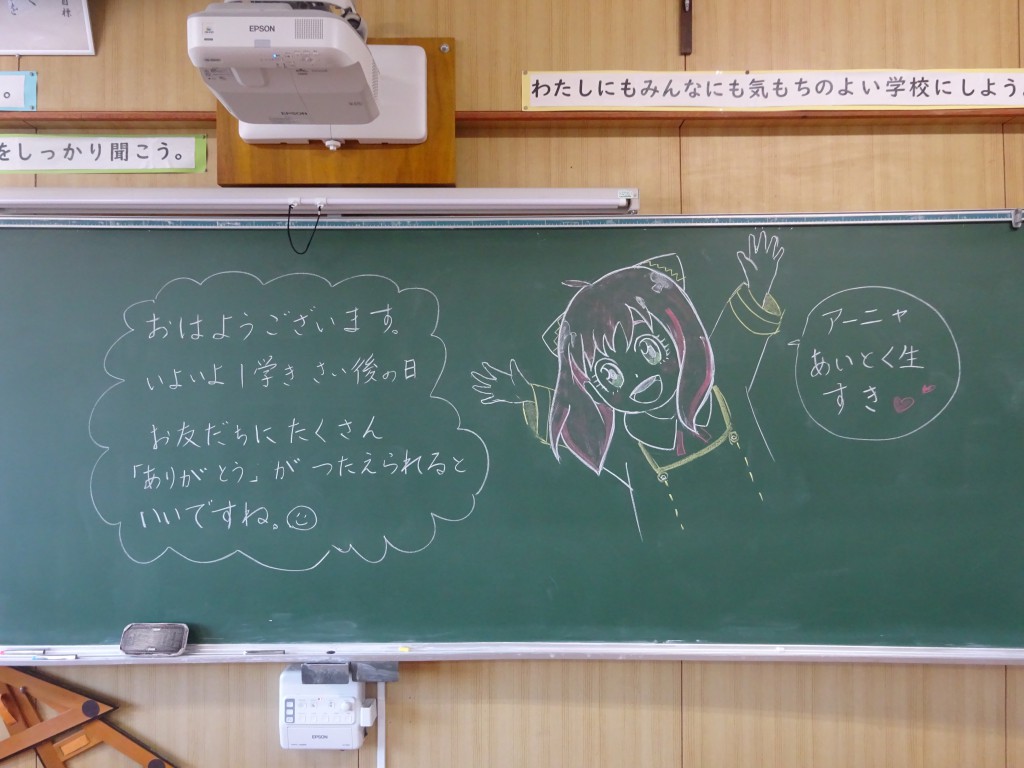 目標
EPSON
わたしにもみんなにも気もちのよい学校にしよう。
をしっかり聞こう。
おはようございます。
いよいよ1学き さい後の日
お友だちに たくさん
「ありがとう」が つたえられると
いいですね。
アーニャ
あいとく生
すき
EPSON